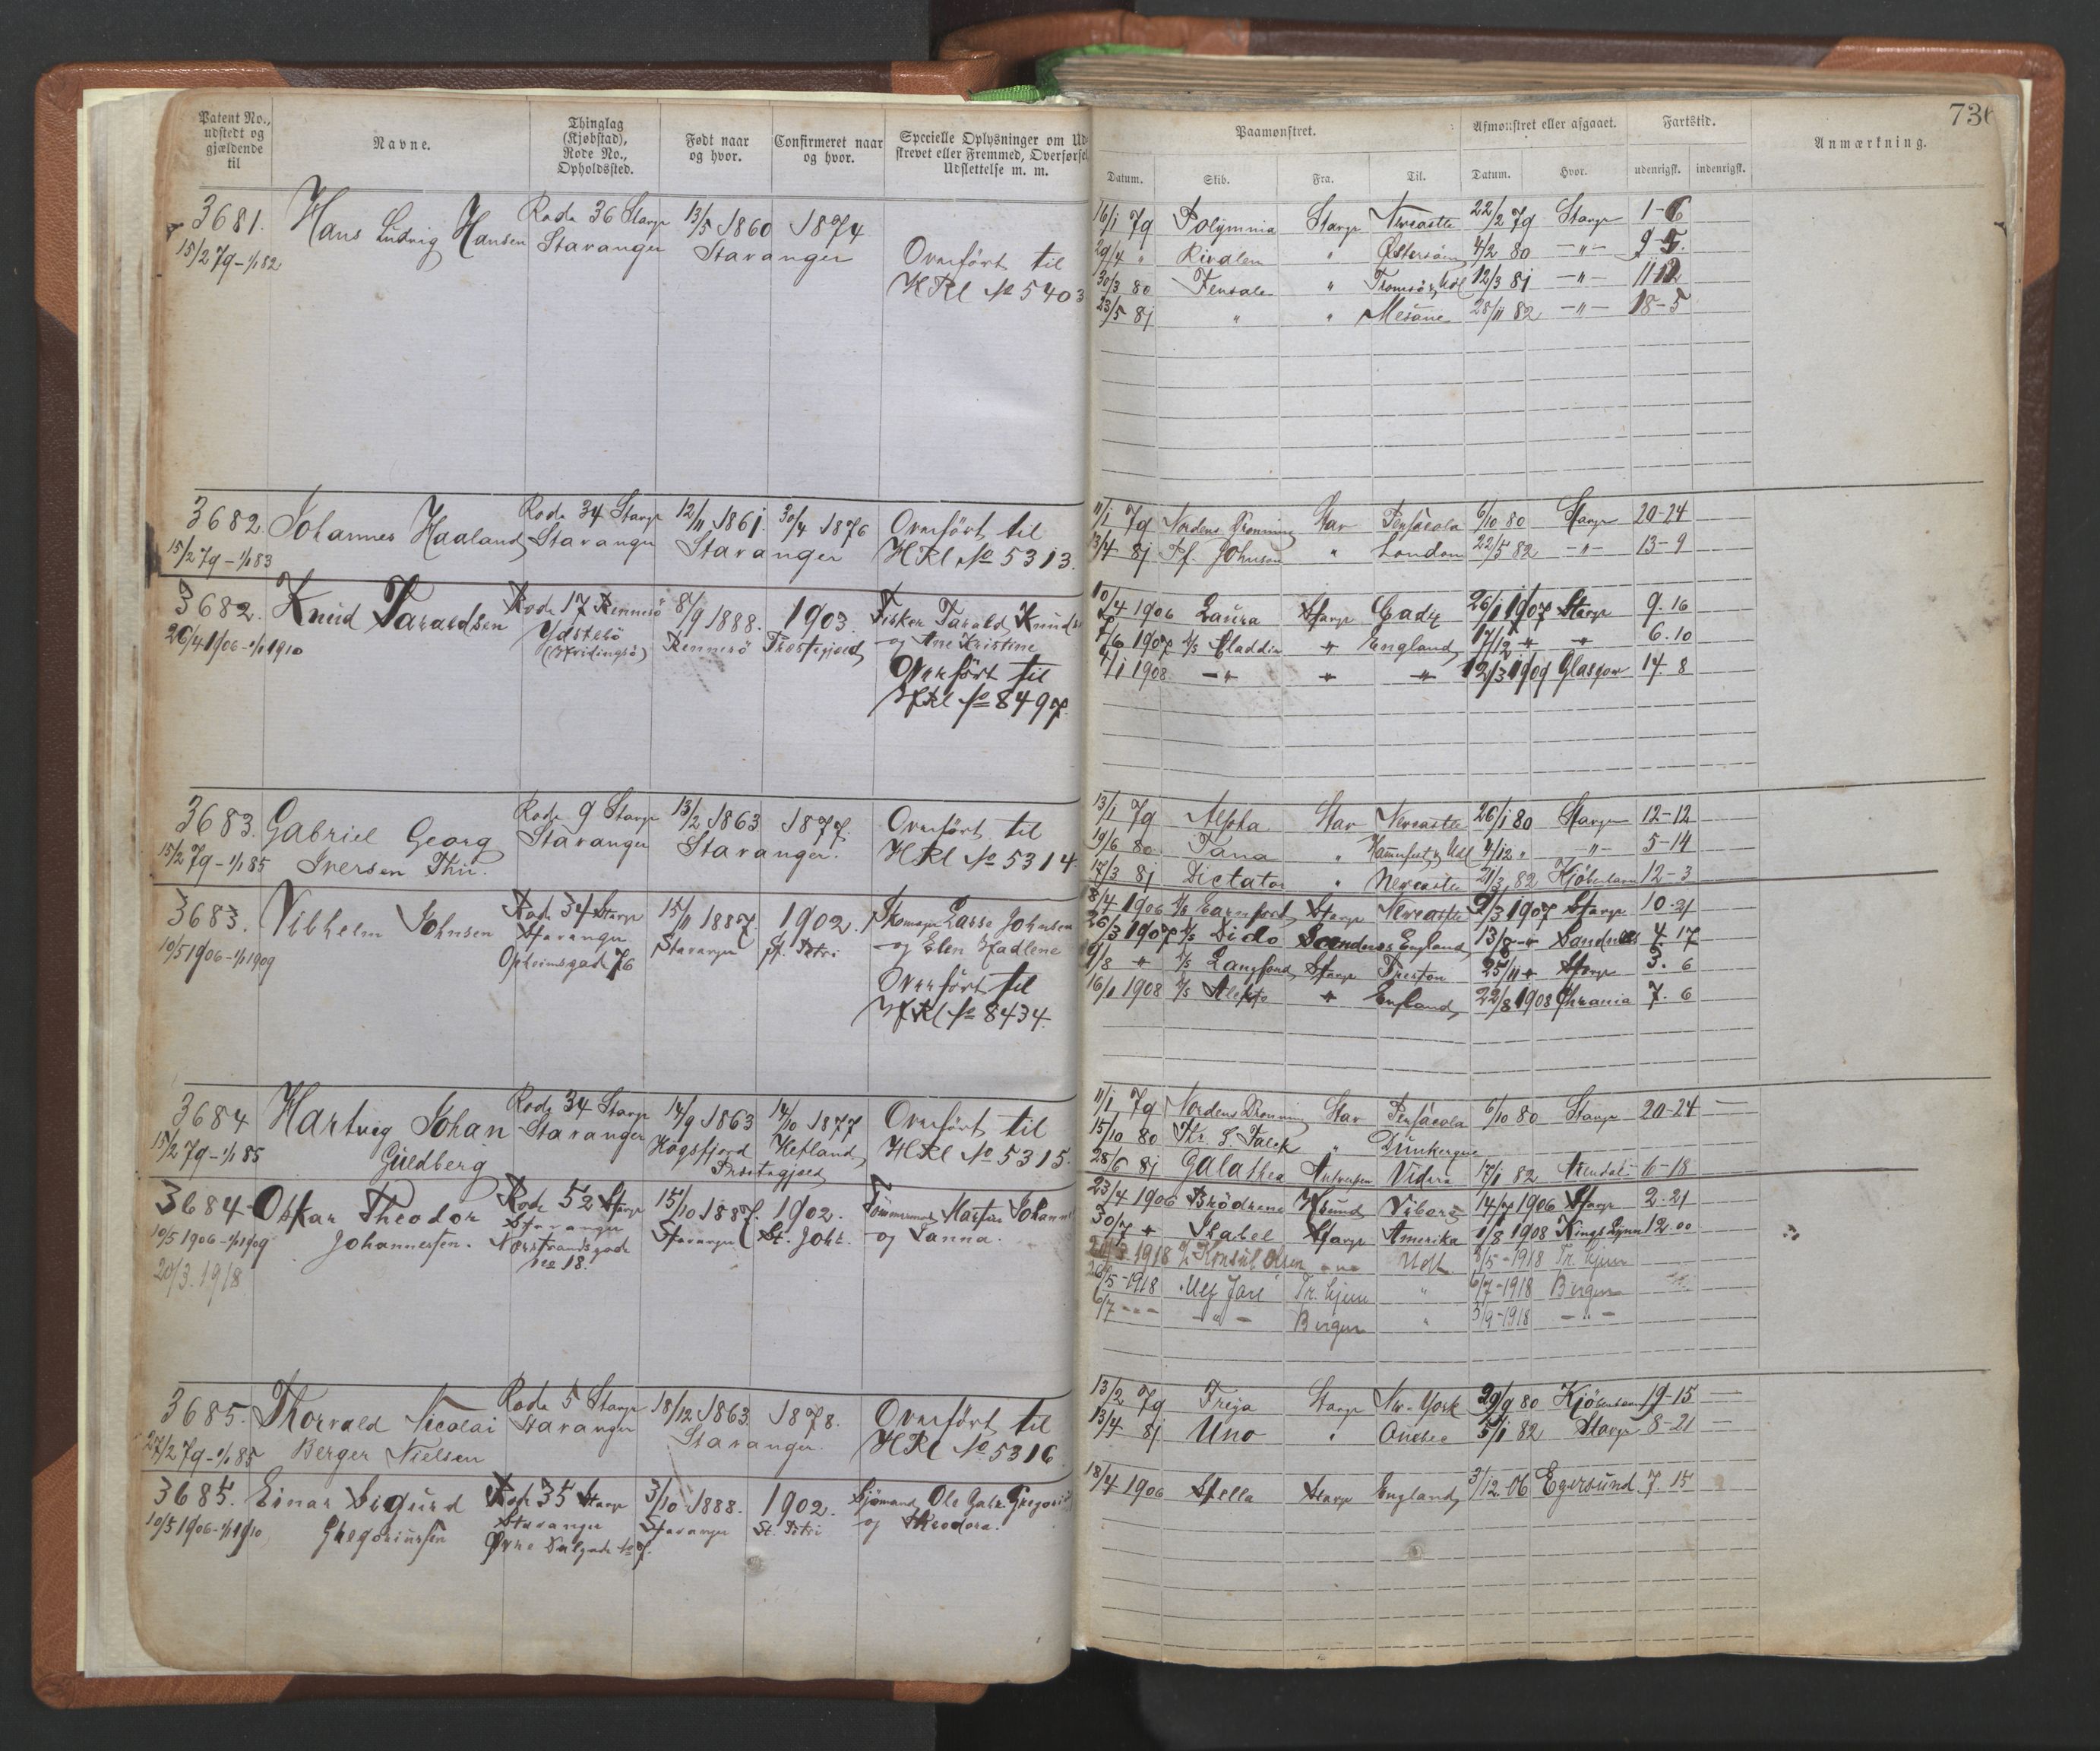 Patent No.,
udstedt og
gjældende
til
Navne.
Thinglag
(Kjøbstad),
Rode No.,
Opholdssted.
Født naar
og hvor.
Confirmeret naar
og hvor.
Specielle Oplysninger om Ud-
skrevet eller Fremmed, Overførsel
Udslettelse m. m.
3681. Hans Ludvig Hansen Rode 36 Stavgr 13/5 1860 1874
15/2 79 - 1/1 82 Stavanger Stavanger
Overført til
HRl № 5403
3682 Johannes Haaland Rode 34 Stavgr 12/11 1861. 30/4 1876 Overført til
15/2 79 - 1/1 83 Stavanger Stavanger HRl № 5313.
3682. Knud Taraldsen Rode 17 Rennesö 8/9 1888. 1903. Fisker Tarald Knuds
26/4 1906 - 1/1 1910 Rennesö Prestegjeld og Ane Kristine
Overført til
HRl № 8497.
3683. Gabriel Georg Rode 9 Stavgr 13/2 1863 1877. Overført til
15/2 79 - 1/1 85 Iversen Thu. Stavanger Stavanger. HRl № 5314.
3683. Vilhelm Johnsen Rode 34 Stavgr 15/11 1887. 1902. Skomager Lasse Johnsen
10/5 1906 - 1/1 1909 Stavanger Stavanger St. Petri og Elen
76
Overført til
HRl № 8434.
3684 Hartvig Johan Rode 34 Stavgr 14/9 1863 14/10 1877 Overført til
15/2 79 - 1/1 85 Guldberg Stavanger Høgsfjord Hetland HRl № 5315.
Prestegjeld
3684 Oskar Theodor Rode 52 Stavgr 15/10 1887. 1902. Tömmermand Martin Johann
10/5 1906 - 1/1 1909 Johannessen. Stavanger Stavanger St. Joh. og Lanna.
20/3. 1918 № 18.
3685. Thorvald Nicolai Rode 5 Stavgr 18/12 1863 1878. Overført til
27/2 79 - 1/1 85 Berger Nielsen Stavanger Stavanger. HRl № 5316
3685. Einar Sigurd Rode 35 Stavgr 3/10 1888. 1902. Sjömand Ole Gabr. Gregorius
10/5 1906 - 1/1 1910 Gregoriussen Stavanger Stavanger St. Petri og Theodora.
736
Paamønstret.
Afmønstret eller afgaaet.
Fartstid.
Anmærkning.
Datum. Skib. Fra. Til. Datum. Hvor. udenrigsk. indenrigsk.
16/1 79 Polymnia Stavgr Newcastle 22/2 79 Stavgr 1-6
29/4 " Rivalen " Østersöen 4/2 80 -"- 9-5.
30/3 80 Fensalen " Tromsö & Udl 12/3 81 -"- 11-12
23/5 81 " " Mesane 28/11 82 -"- 18-5
11/1 79 Nordens Dronning Stav Pensacola 6/10 80 Stavgr 20-24
13/4 81 Pf. Johnsen " London 22/5 82 -"- 13-9
10/4 1906 Laura Stavgr Cadiz 26/1 1907 Stavgr 9.16
7/6 1907 S/S Aladdin " England 17/12 " " 6.10
4/1 1908 -"- " " 12/3 1909 Glasgow 14.8
13/1 79 Alpha Stav Newcastle 26/1 80 Stavgr 12-12
19/6 80 Tana " Hammerfest & Udl 4/12 " -"- 5-14
17/3 81 Dictator " Newcastle 21/3 82 Kjöbenhavn 12-3
8/4 1906 S/S Stavgr Newcastle 9/3 1907 Stavgr 10-21
26/3 1907 S/S Dido Sandnes England 13/8 " Sandnes 4.17
9/8 " S/S Langfond Stavgr Preston 25/11 " Stavgr 3.6
16/1 1908 S/S Alekto " England 22/8 1908 Chrania 7.6
11/1 79 Nordens Dronning Stav Pensacola 6/10 80 Stavgr 20-24
15/10 80 Thr. S. Falck " Dunkerque
28/6 81 Galathea 17/1 82 Arendal 6-18
23/4 1906 Brödrene Viborg 14/7 1906 Stavgr 2-21
30/7 " Isabel Stavgr Amerika 1/8 1908 Kings Lynn 12.00
1918 S/S Konsul Olsen Udl. 8/5-1918 Tr. hjem
26/5-1918 Ulf Jarl Tr. hjem " 6/7-1918 Bergen
6/7 --- -"- Bergen " 5/9-1918 -"-
13/2 79 Freja Stavgr New-York 29/9 80 Kjöbenhavn 19-15
13/4 81 Uno " Quebec 5/1 82 Stavgr 8-21
18/4 1906 Stella Stavgr England 3/12 06 Egersund 7.15